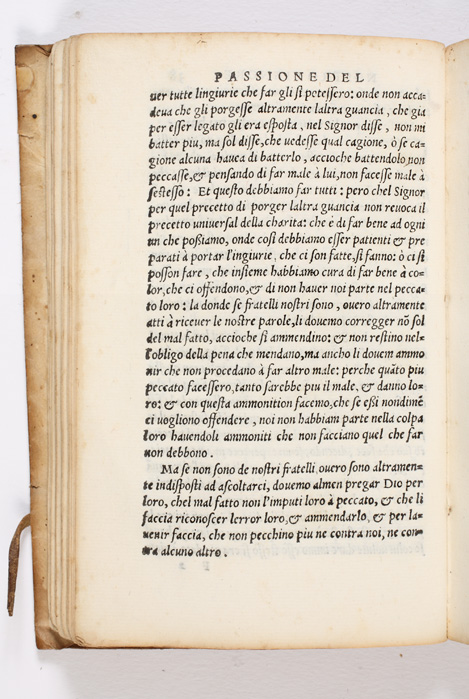 PASSIONE DEL
uer tutte lingiurie che far gli si potessero: onde non acca-
deua che gli porgesse altramente laltra guancia, che gia
per esser legato gli era esposta, nel Signor disse, non mi
batter piu, ma sol disse, che uedesse qual cagione, ò se ca-
gione alcuna hauea di batterlo, accioche battendolo, non
peccasse, & pensando di far male à lui, non facesse male à
se stesso: Et questo debbiamo far tutti: pero chel Signor
per quel precetto di porger laltra guancia non reuoca il
precetto uniuersal della charita: che è di far bene ad ogni
un che possiamo, onde così debbiamo esser patienti & pre
parati à portar l'ingiurie, che ci son fatte, si fanno: ò ci si
posson fare, che insieme habbiamo cura di far bene à co-
lor, che ci offendono, & di non hauer noi parte nel pecca-
to loro: la donde se fratelli nostri sono, ouero altramente
atti à riceuer le nostre parole, li douemo corregger nō sol
del mal fatto, accioche si ammendino: & non restino nel-
l'obligo della pena che mendano, ma ancho li douem ammo
nir che non procedano à far altro male: perche quāto piu
peccato facessero, tanto sarebbe piu il male, & danno lo-
ro: & con questa ammonition facemo, che se essi nondimē
ci uogliono offendere, noi non habbiam parte nella colpa
loro hauendoli ammoniti che non facciano quel che far
non debbono.
Ma se non sono de nostri fratelli, ouero sono altramen-
te indisposti ad ascoltarci, douemo almen pregar Dio per
loro, chel mal fatto non l'imputi loro à peccato, & che li
faccia riconoscer lerror loro, & ammendarlo, & per la-
uenir faccia, che non pecchino piu ne contra noi, ne con-
tra alcuno altro.